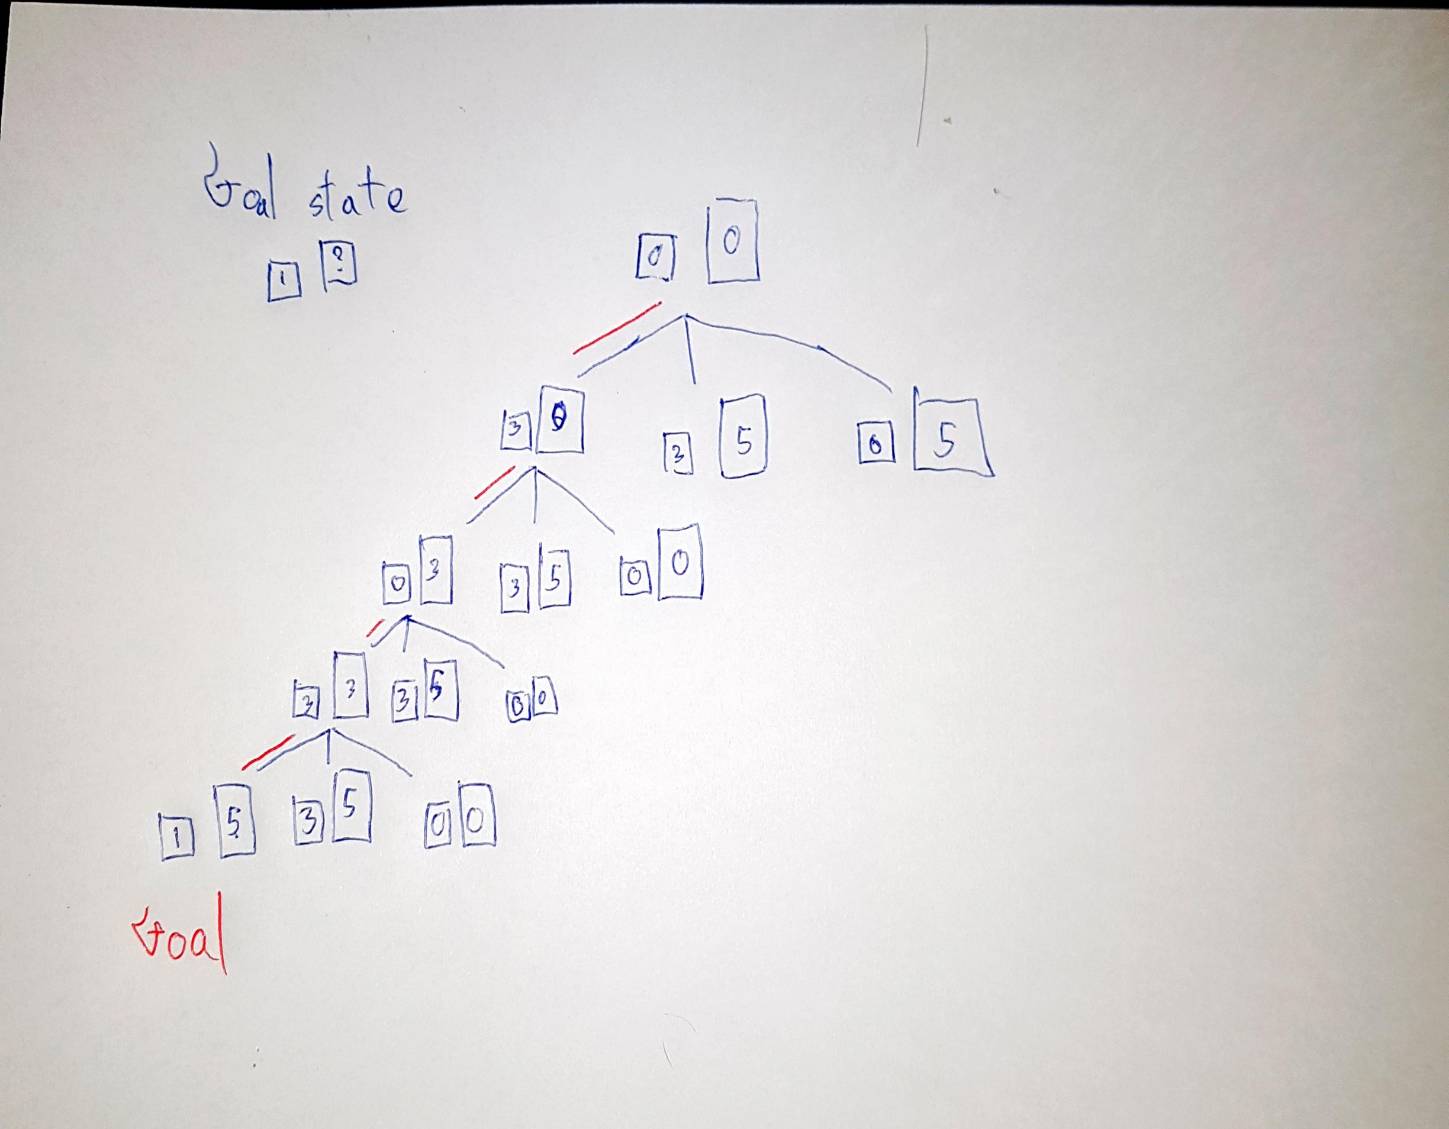 Goal state
1 ?
0 0
3 0 3 5 0 5
0 3 3 5 0 0
3 3 3 5 0 0
1 5 3 5 0 0
Goal